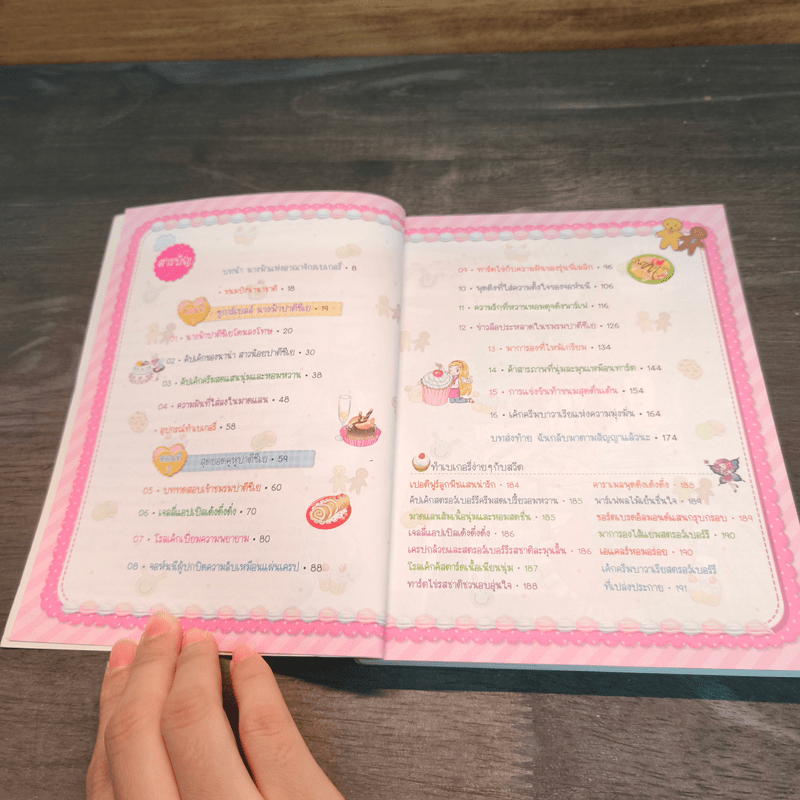 สารบัญ
บทนำ นางฟ้าแห่งอาณาจักรเบเกอรี่ • 8
• ขนมปังนานาชาติ • 18
ตอนที่ 1
ชูการ์เบลล์ นางฟ้าปาติซิเย • 19
01 • นางฟ้าปาติซิเยโดนลงโทษ • 20
02 • คัปเค้กของนาน่า สาวน้อยปาติซิเย • 30
03 • คัปเค้กครีมสดแสนนุ่มและหอมหวาน • 38
04 • ความฝันที่ใส่ลงในมาดแลน • 48
• อุปกรณ์ทำเบเกอรี่ • 58
ตอนที่ 2
สุดยอดคู่หูปาติซิเย • 59
05 • บททดสอบเข้าชมรมปาติซิเย • 60
06 • เจลลี่แอปเปิลเด้งดึ๋งดึ๋ง • 70
07 • โรลเค้กเปี่ยมความพยายาม • 80
08 • จอห์นนี่ผู้ปกปิดความลับเหมือนแผ่นเครป • 88
09 • ทาร์ตไข่กับความฝันของรุ่นพี่เมลิก • 96
10 • พุดดิ้งที่ใส่ความตั้งใจของจอห์นนี่ • 106
11 • ความรักที่หวานหอมดุจดั่งพาร์เฟ่ • 116
12 • ข่าวลือประหลาดในชมรมปาติซิเย • 126
13 • มาการองที่ไหม้เกรียม • 134
14 • คำสารภาพที่นุ่มละมุนเหมือนทาร์ต • 144
15 • การแข่งรันทำขนมสุดตื่นเต้น • 154
16 • เค้กครีมบาวาเรียแห่งความมุ่งมั่น • 164
บทส่งท้าย ฉันกลับมาตามสัญญาแล้วนะ • 174
ทำเบเกอรี่ง่ายๆ กับสวีต
เปอติฟูร์ลูกพีชแสนน่ารัก • 184
คัปเค้กสตรอว์เบอร์รีครีมสดเปรี้ยวอมหวาน • 185
มาดแลนส้มเนื้อนุ่มและหอมสดชื่น • 185
เจลลี่แอปเปิลเด้งดึ๋งดึ๋ง • 186
เครปกล้วยและสตรอว์เบอร์รีรสชาติละมุนลิ้น • 186
โรลเค้กคัสตาร์ดเนื้อเนียนนุ่ม • 187
ทาร์ตไข่รสชาติชวนอบอุ่นใจ • 188
คาราเมลพุดดิ้งเด้งดึ๋ง • 188
พาร์เฟ่ผลไม้เย็นชื่นใจ • 189
ชอร์ตเบรดอัลมอนด์แสนกรุบกรอบ • 189
มาการองไส้แยมสตรอว์เบอร์รี • 190
เอแคลร์หอมอร่อย • 190
เค้กครีมบาวาเรียสตรอว์เบอร์รี
ที่เปล่งประกาย • 191